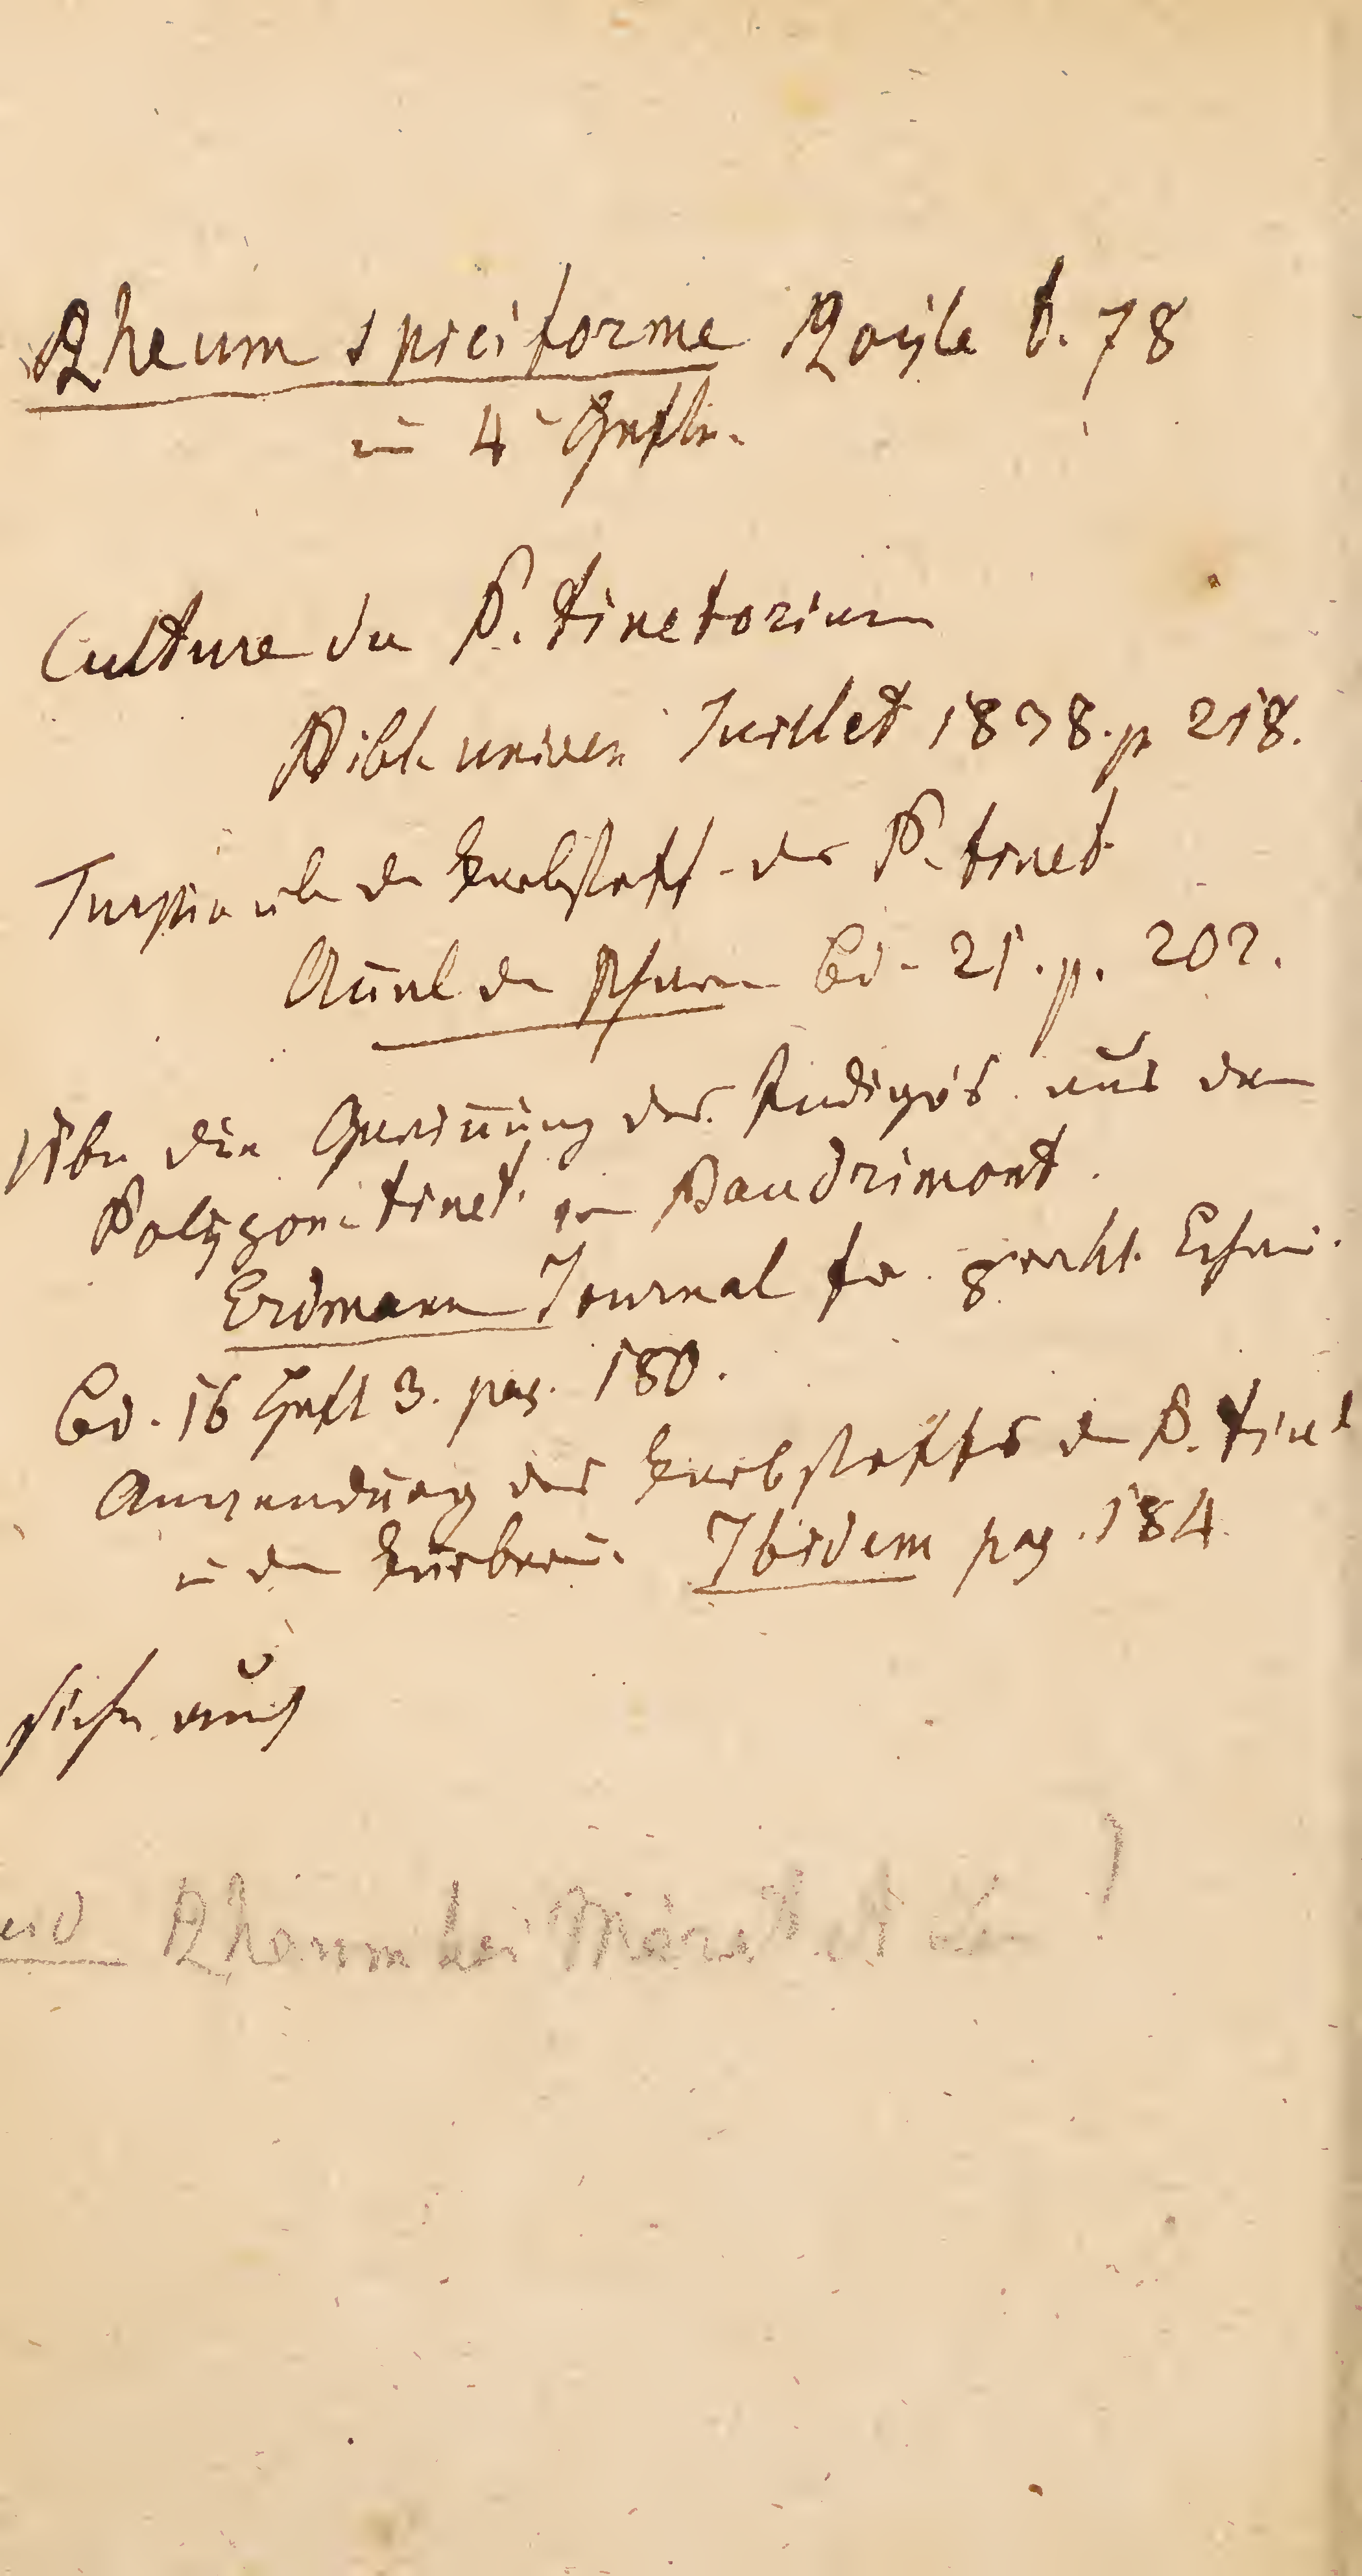 Rheum spiciforme Royle t. 78
im 4 Hefte.
Culture du P. tinctorium
Bibl. univers Juillet 1838. p 218.
Turpin üb. den Farbstoff des P. tinct
Annal der Pharm Bd. 25. p. 202.
Über die Gewinnung des Indigo's aus dem
Polygon. tinct. von Baudrimont.
Erdmann Journal für prakt. Chemi.
Bd. 16 Heft 3. pag. 180.
Anwendung des Farbstoffes des P. tinct
in der Färberei. Ibidem pag. 184
siehe auch
Rheum bei Mérat et